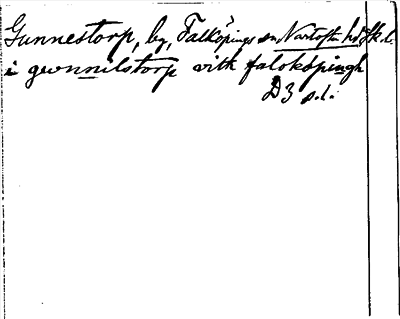 Gunnestorp, by, Falköpings sn Vartofta hd Sk.l.
i gwnnilstorp vith falokøpingh
D3 s.l.